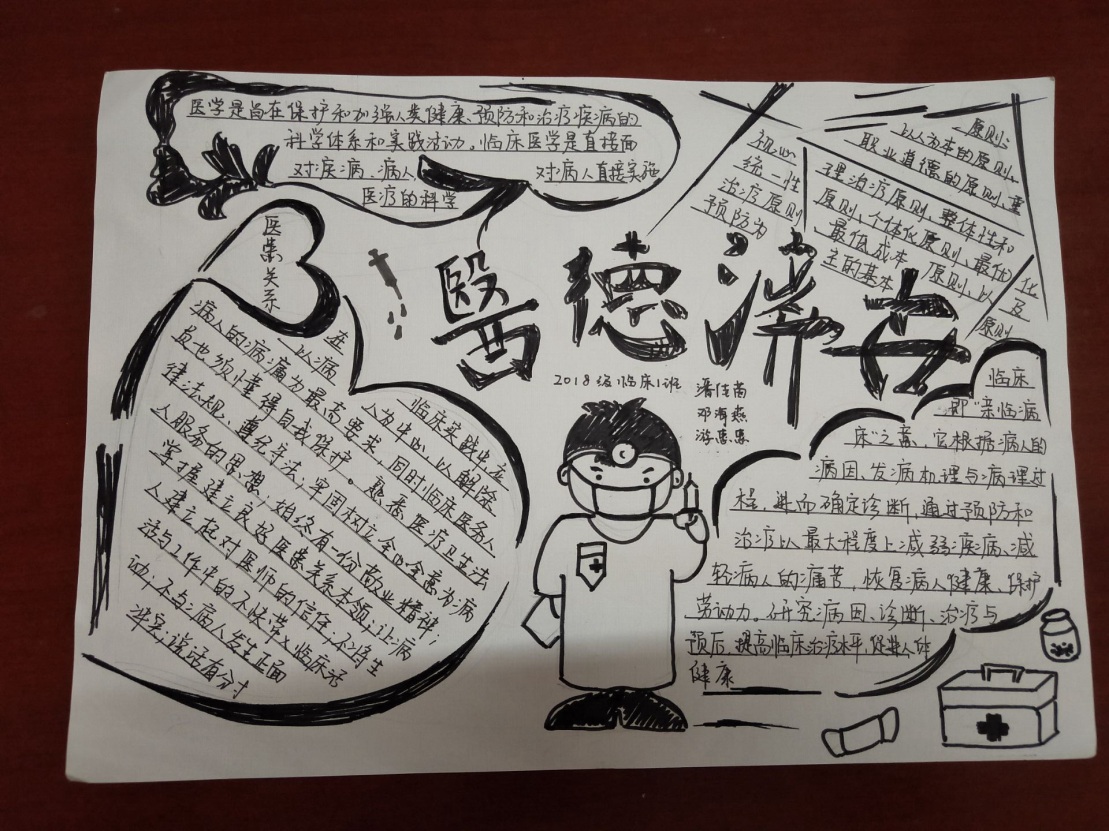 医学是尚在保护和加强人类健康、预防和治疗疾病的
科学体系和实践活动。临床医学是直接面
对疾病、病人, 对病人直接实施
医疗的科学
原则:
以人为本的原则、
职业道德的原则、重
视心理治疗原则、整体性和
统一性原则、个体化原则、最优化
治疗原则、最低成本原则、以及
预防为主的基本原则
醫德濟世
2018级临床1班
邓海燕
医患关系
临床实践中应
在以病人为中心,以解除
病人的病痛为最高要求,同时临床医务人
员也须懂得自我保护。熟悉医疗卫生法
律法规、遵纪守法;牢固树立全心全意为病
人服务的思想,始终有一份敬业精神;
掌握建立良好医患关系本领;让病
人建立起对医师的信任,不将生
活与工作中的不快带入临床活
动;不与病人发生正面
冲突;说话有分寸
临床
即“亲临病
床”之意、它根据病人的
病因、发病机理与病理过
程,进而确定诊断,通过预防和
治疗以最大程度上减弱疾病、减
轻病人的痛苦,恢复病人健康、保护
劳动力。研究病因、诊断、治疗与
预后,提高临床治疗水平,促进人体
健康